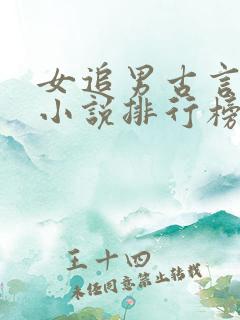 女追男古言
小说排行榜
王十四
未经同意禁止转载